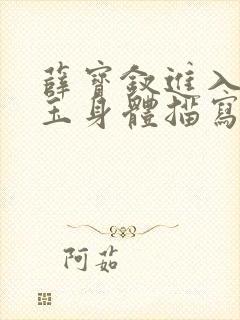 薛寶釵進入
玉身體描寫
阿茹